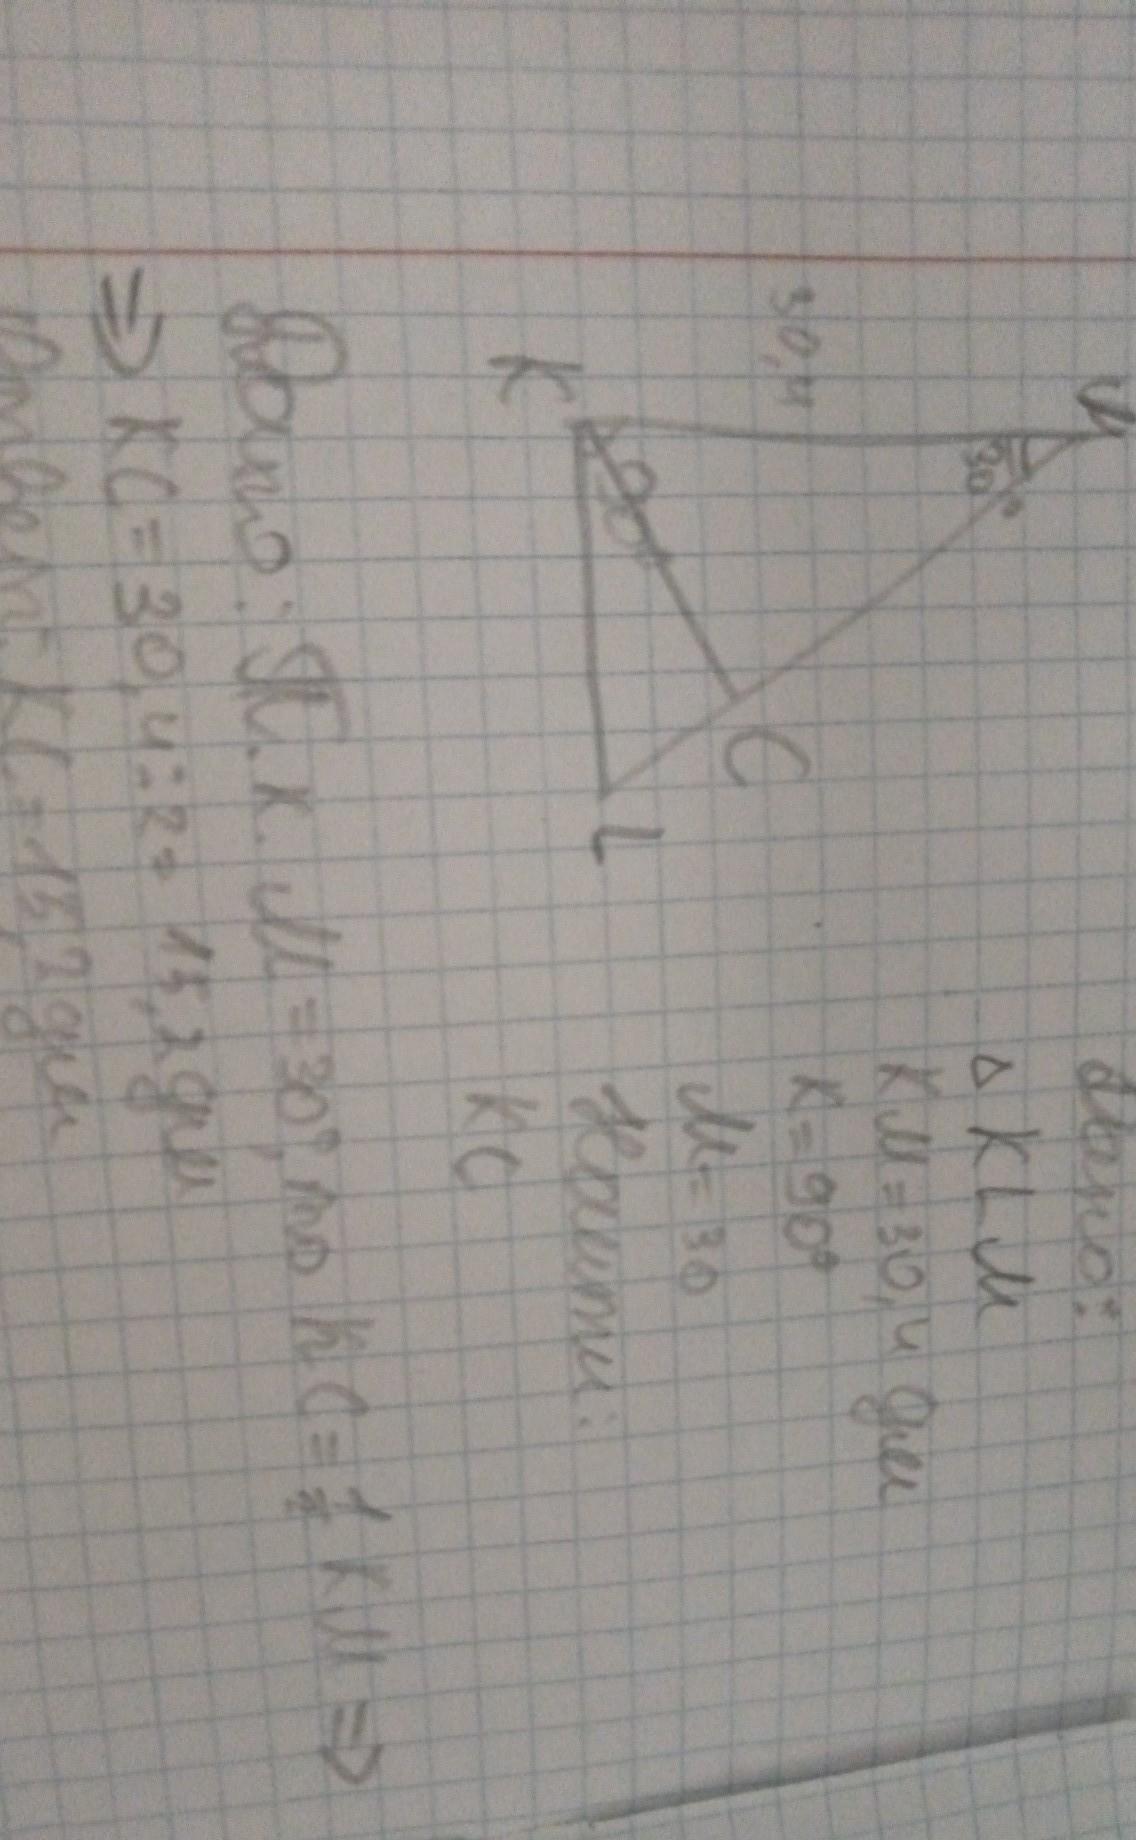 М
30°
30,4
К
90°
С
L
Дано:
△ KLM
KM = 30,4 дм
K = 90°
M = 30
Найти:
KC
Док-во: Т.к. M = 30°, то KC = 1/2 KM ⇒
⇒ KC = 30,4 : 2 = 15,2 дм
Ответ: KC = 15,2 дм